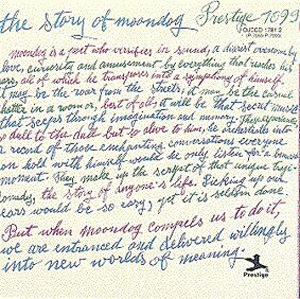 the story of moondog Prestige 7099
OJCCD-1741-2
(P-7099)
moondog is a poet who versifies in sound, a diarist overcome by
love, curiosity and amusement by everything that reaches his
ears, all of which he transposes into a symphony of himself.
it may be the roar from the streets; it may be the casual
chatter in a room or, best of all, it will be that secret music
that seeps through imagination and memory. These experiences,
so dull to the dull but so alive to him, he orchestrates into
a record of those enchanting conversations everyone
can hold with himself would he only listen for a
moment. They make up the script of that unique
comedy, the story of anyone's life. Picking up our
ears would be so easy; yet it is seldom done.
But when moondog compels us to do it,
we are entranced and delivered willingly
into new worlds of meaning.
Prestige